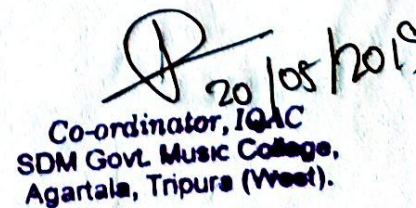 20/05/2019
Co-ordinator, IQAC
SDM Govt. Music College,
Agartala, Tripura (West).